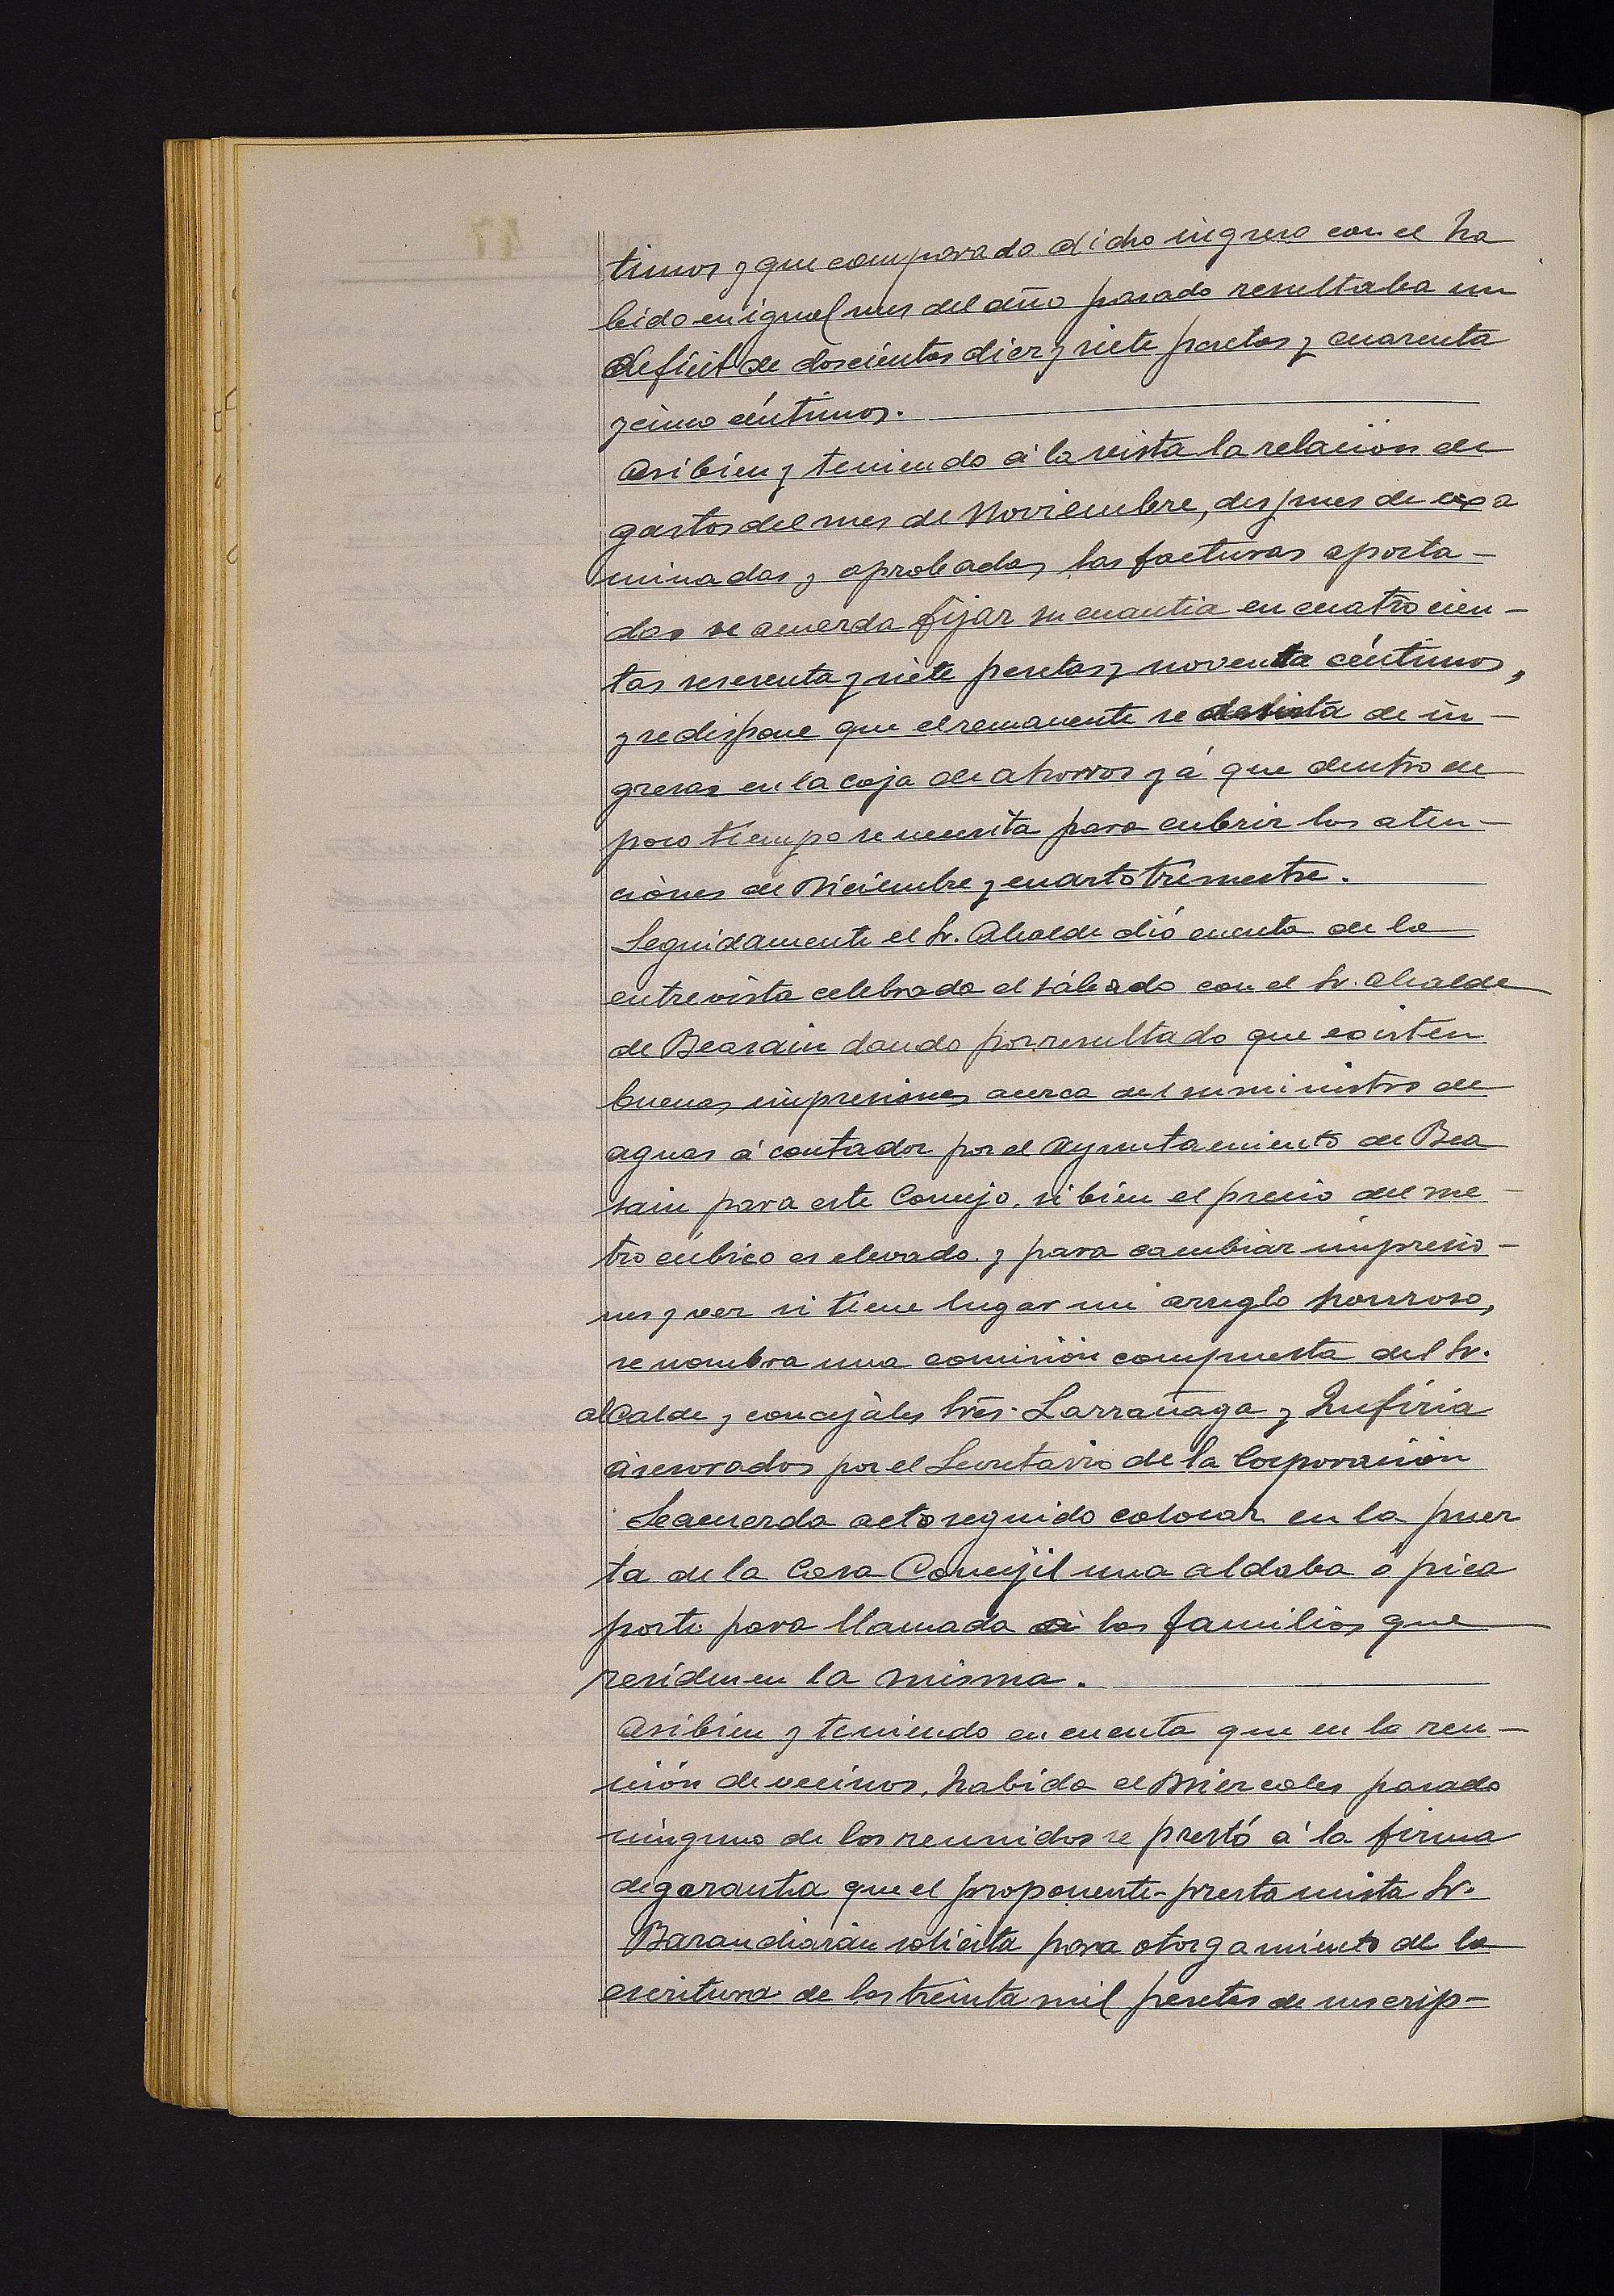 timos y que comparado dicho ingreso con el ha
bido en igual mes del año pasado resultaba un
deficit de doscientas diez y siete pesetas y cuarenta
y cinco céntimos.
Asibien y teniendo á la vista la relación de
gastos del mes de Noviembre, despues de exa
minadas y aprobadas las facturas aporta-
das se acuerda fijar su cuantia en cuatrocien-
tas sesenta y siete pesetas y noventa céntimos,
y se dispone que el remanente se desista de in-
gresar en la caja de ahorros yá que dentro de
poco tiempo se necesita para cubrir las aten-
ciones de Diciembre y cuarto trimestre.
Seguidamente el Sr. Alcalde dió cuenta de la
entrevista celebrada el sábado con el Sr. Alcalde
de Beasain dando por resultado que existen
buenas impresiones acerca del suministro de
aguas á contador por el Ayuntamiento de Bea
sain para este Concejo, si bien el precio del me-
tro cúbico es elevado y para cambiar impresio-
nes y ver si tiene lugar un arreglo honroso,
se nombra una comisión compuesta del Sr.
alcalde y concejales Sres. Larrañaga y Zufiria
asesorados por el Secretario de la Corporación
Se acuerda acto seguido colocar en la puer
ta de la Casa Concejil una aldaba ó pica
porte para llamada á las familias que
residen en la misma.
Asibien y teniendo en cuenta que en la reu-
nión de vecinos, habida el Miercoles pasado
ninguno de los reunidos se prestó á la firma
de garantia que el proponente-prestamista Sr.
Barandiarán solicita para otorgamiento de la
escritura de las treinta mil pesetas de suscrip-